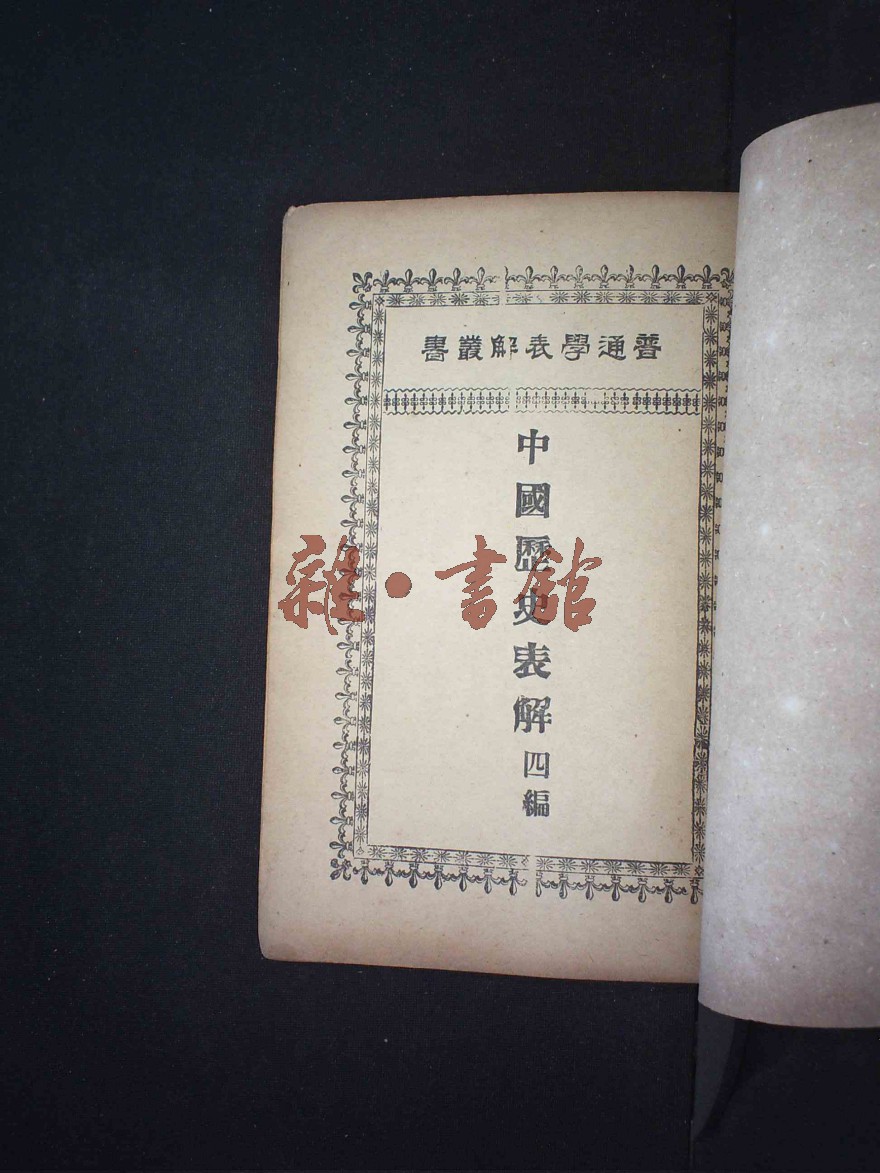 普通學表解叢書
中國歷史表解 四編
雜·書館